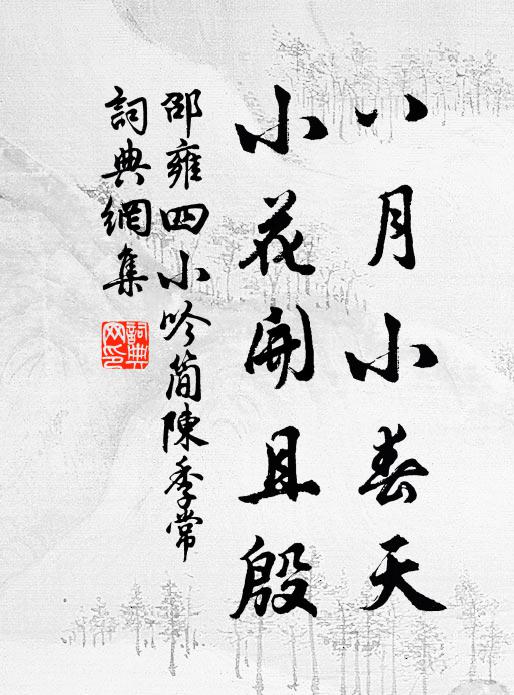 八月小春天
小花開且殷
邵雍四小吟簡陳季常
詞典網集
詞典
网印